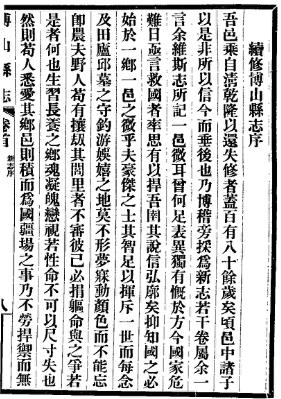 續修博山縣志序
吾邑乘自清乾隆以還失修者蓋百有八十餘歲矣頃邑中諸子
以是非所以信今而垂後也乃博稽旁採爲新志若干卷屬余一
言余維斯志所記一邑微耳曾何足表異獨有慨於方今國家危
難日亟言救國者率思有以捍吾圉其說信弘廓矣抑知國之必
始於一鄉一邑之微乎夫豪傑之士其智足以揮斥一世而每念
及田廬邱墓之守釣游娛嬉之地莫不形夢寐動顏色而不能忘
卽農夫野人苟有攘刼其閭里者不審彼己必捐軀命與之爭若
是者何也生習長養之鄉魂凝魄戀視若性命不可以尺寸失也
然則苟人悉愛其鄉邑則積而爲國疆場之事乃不勞捍禦而無
博山縣志
卷首
新志序
八